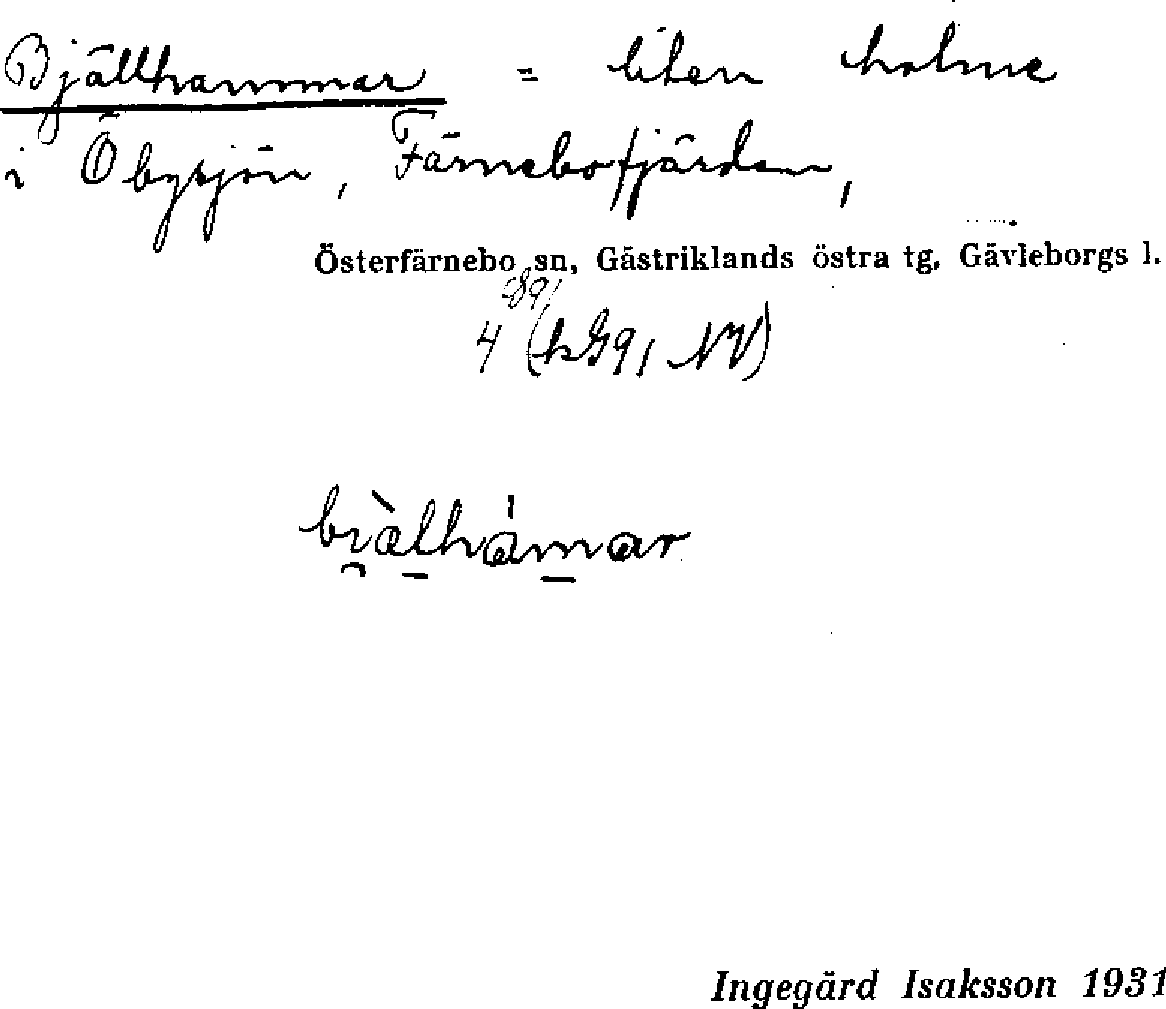 Bjällhammar = liten holme
i Öbysjön, Färnebofjärden,
Österfärnebo sn, Gästriklands östra tg, Gävleborgs l.
4
Ingegärd Isaksson 1931